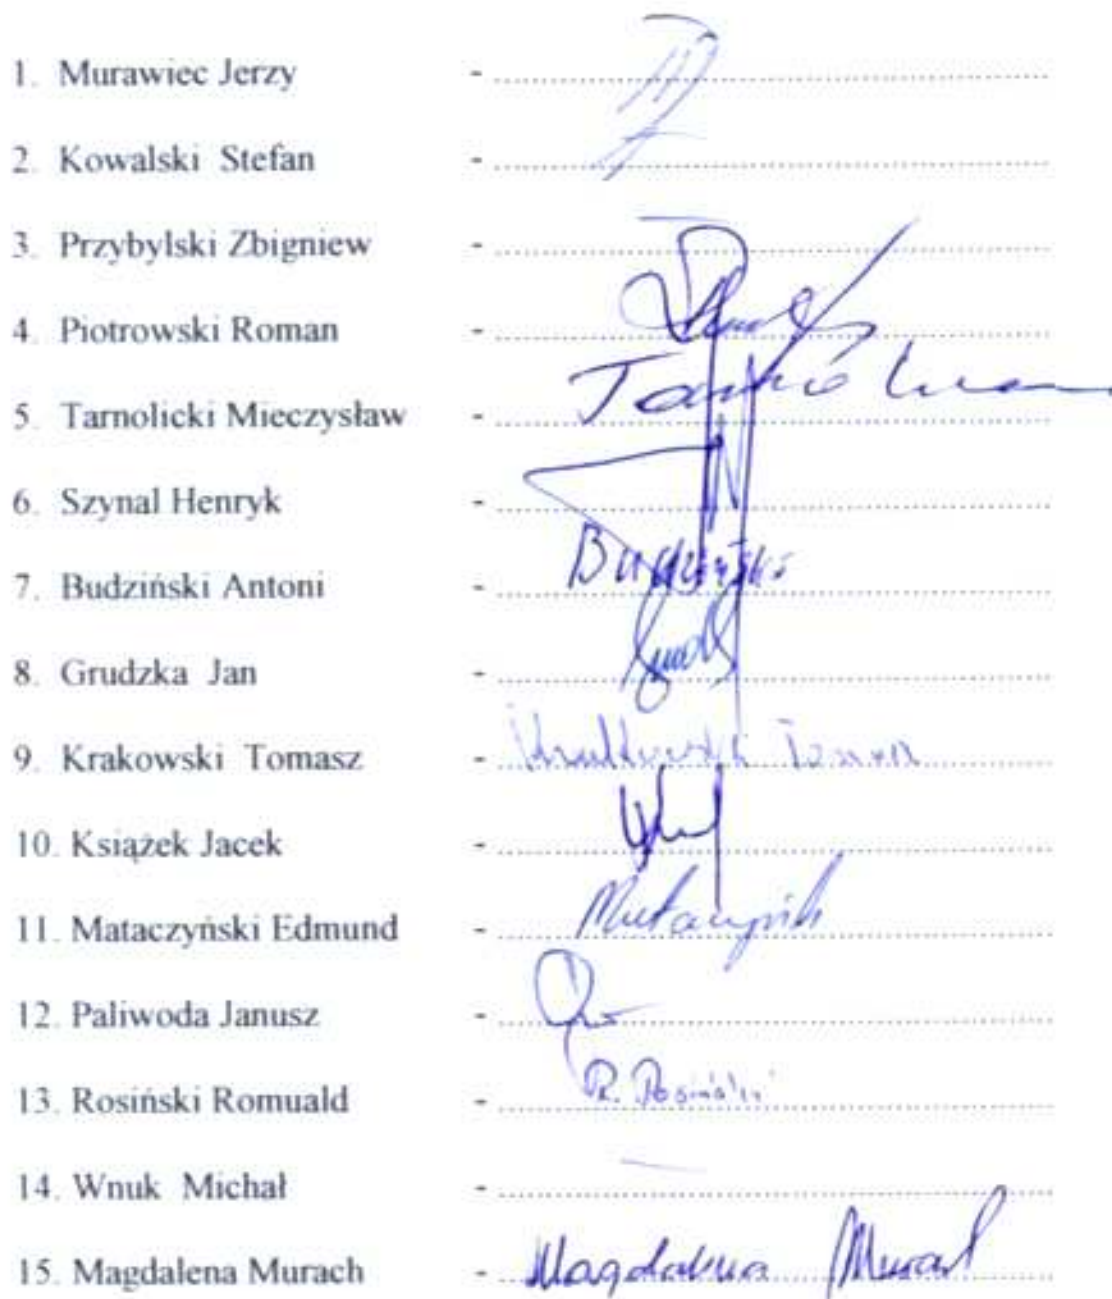 1. Murawiec Jerzy - ........................................
2. Kowalski Stefan - ........................................
3. Przybylski Zbigniew - ........................................
4. Piotrowski Roman - ........................................
5. Tarnolicki Mieczysław - ........................................
6. Szynal Henryk - ........................................
7. Budziński Antoni - Budziński
8. Grudzka Jan - ........................................
9. Krakowski Tomasz - Krakowski Tomasz
10. Książek Jacek - ........................................
11. Mataczyński Edmund - ........................................
12. Paliwoda Janusz - ........................................
13. Rosiński Romuald - R. Rosiński
14. Wnuk Michał - ........................................
15. Magdalena Murach - Magdalena Murach